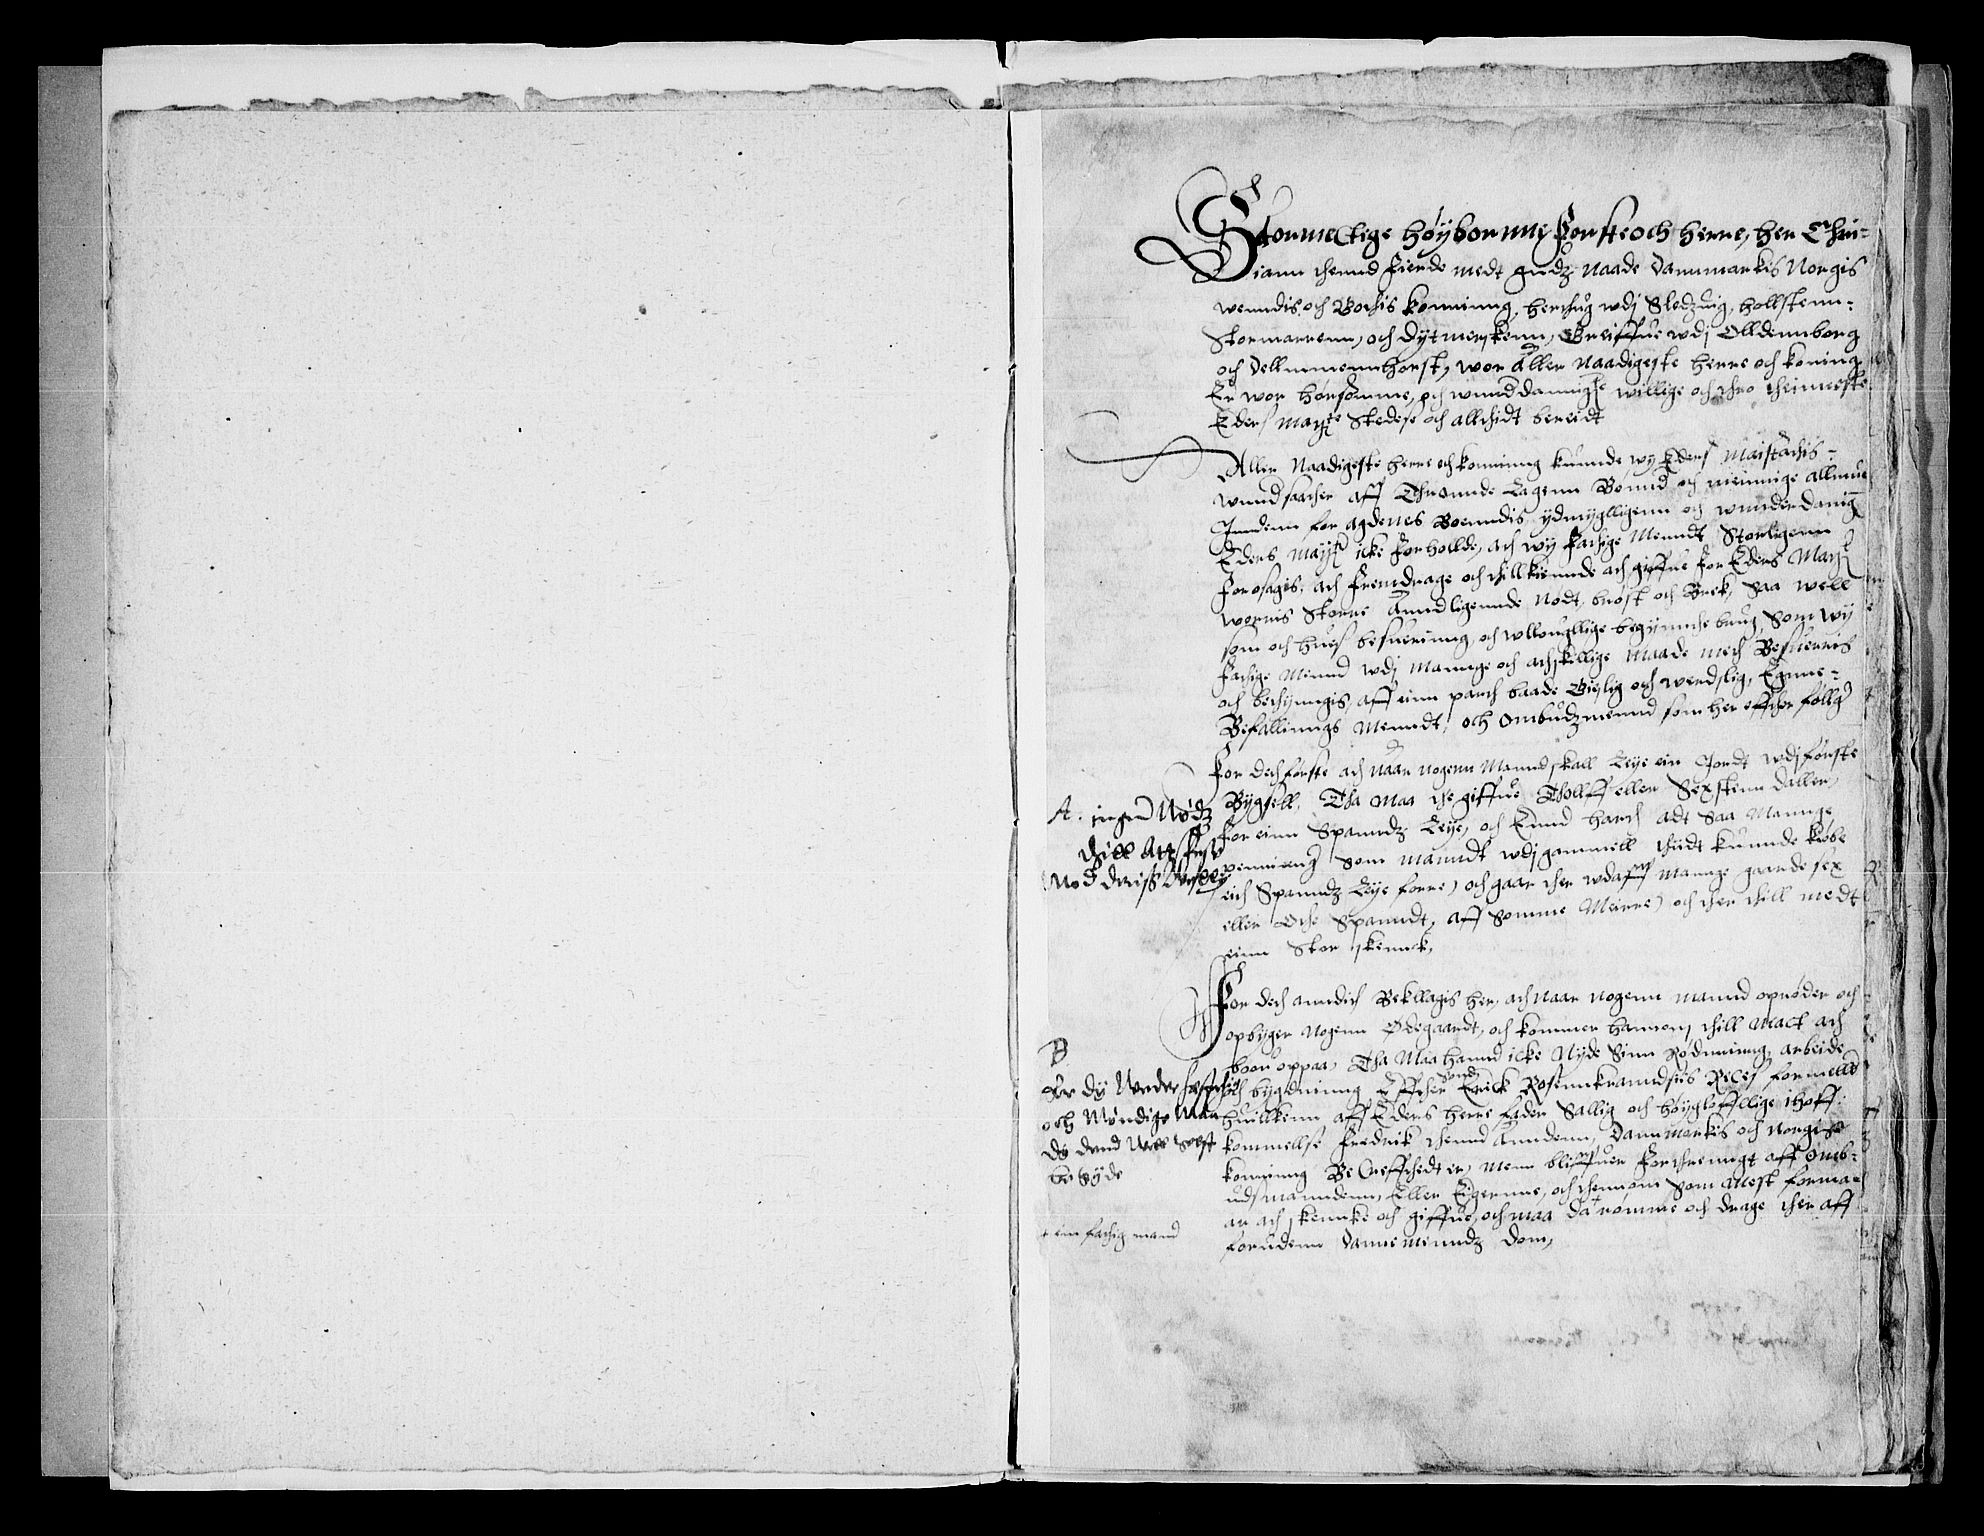 Stormectige Høybornne Første och herre, her Chri-
stiann thennd fierde medt gudz Naade Dannmarkis Norgis
wenndis och Gothis konning, herthug wdj Sledzuig, hollstenn-
Stormarrenn, och Dytmerskenn, Greiffue wdj Olldennborg
och Dellmmennhorst, wor Aller Naadigeste herre och koning
Er wor hørsomme, och wnnddannighe willige och thro theineste
Eders Maytt Stedese och alltidt bereidt
Aller Naadigeste herre och konning kunnde wy Eders Maistathis-
wnndsaather aff Thronnde Lagenn Bønnd och meinnige allmue
Inndenn for Agdenes Boenndis ydmyglligenn och wnnderdanig
Eders Maytt icke forhollde, ath wy fathige Menndt Storligenn
forosagis, ath fremdrage och thillkiennde ath giffue for Eders Maytt
worris Storre Anndligennde Nødt, brøst och Breck, Saa well
som och hues besuerinng, och wllouglige begynnthe brug, Som wy
fathige Mennd wdj Mannge och athskillige Maade meth Besuerris
och bethynngis, aff einn parth baade Gieslig och werdslig, Egnne-
Befallinngs Menndt, och Ombudzmennd som her effther føllger
For deth første ath Naar Nogenn Mannd skall Leye ein Jordt wdj første
Bygsell, Tha Maa the giffue Thollff eller Sexstenn daller,
for einn Spanndz Leye, och Ennd harth adt Saa Mannge
penninng Som Manndt wdj gammell thiidt kunnde kiøbe
eith Spanndz Leye forre, och gaar ther wdaff Mannge gaarde sex
eller Otte Spanndt, aff Somme Meirre, och ther thill medt
einn Stor skennck,
A. ingen Nødz
thill Att feste
Mod deriss
For deth anndit Beklagis her, ath Naar Nogenn Mannd oprøder och
opbyger Nogenn Ødegaardt, och kommer hannom thill Mact ath
boeu oppaa, Tha Maa hannd icke Nyde Sinn Rødninng, arbeide
och bygdninng Effther Erick Rosennkranndsiis Recess formelld
huillkenn aff Eders herre fader Sallig och Høygloffllige ihoff-
kommellse Fredrik thennd Anndenn, Dannmarkis och Norgis
konning Becreffthedt er, Menn bliffuer forthrenngt aff Omb-
udsmanndenn, Eller Eigernne, och thennom Som Mest forma-
ar ath skennke och giffue, och maa da + rømme och drage ther aff
forudenn Danne menndz Dom,
B
Er dy Under
och Møndige Man
ds dend well Selff
+ en fathig mand